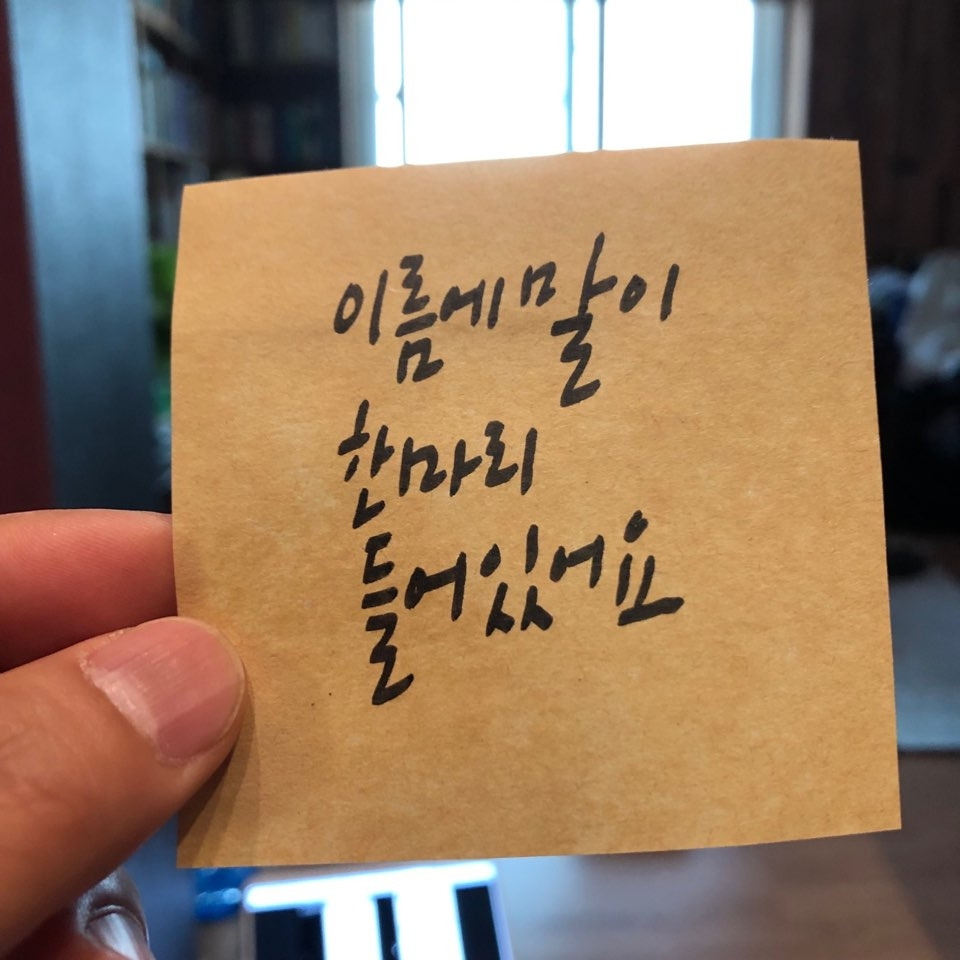 이름에 말이
한마리
들어있어요